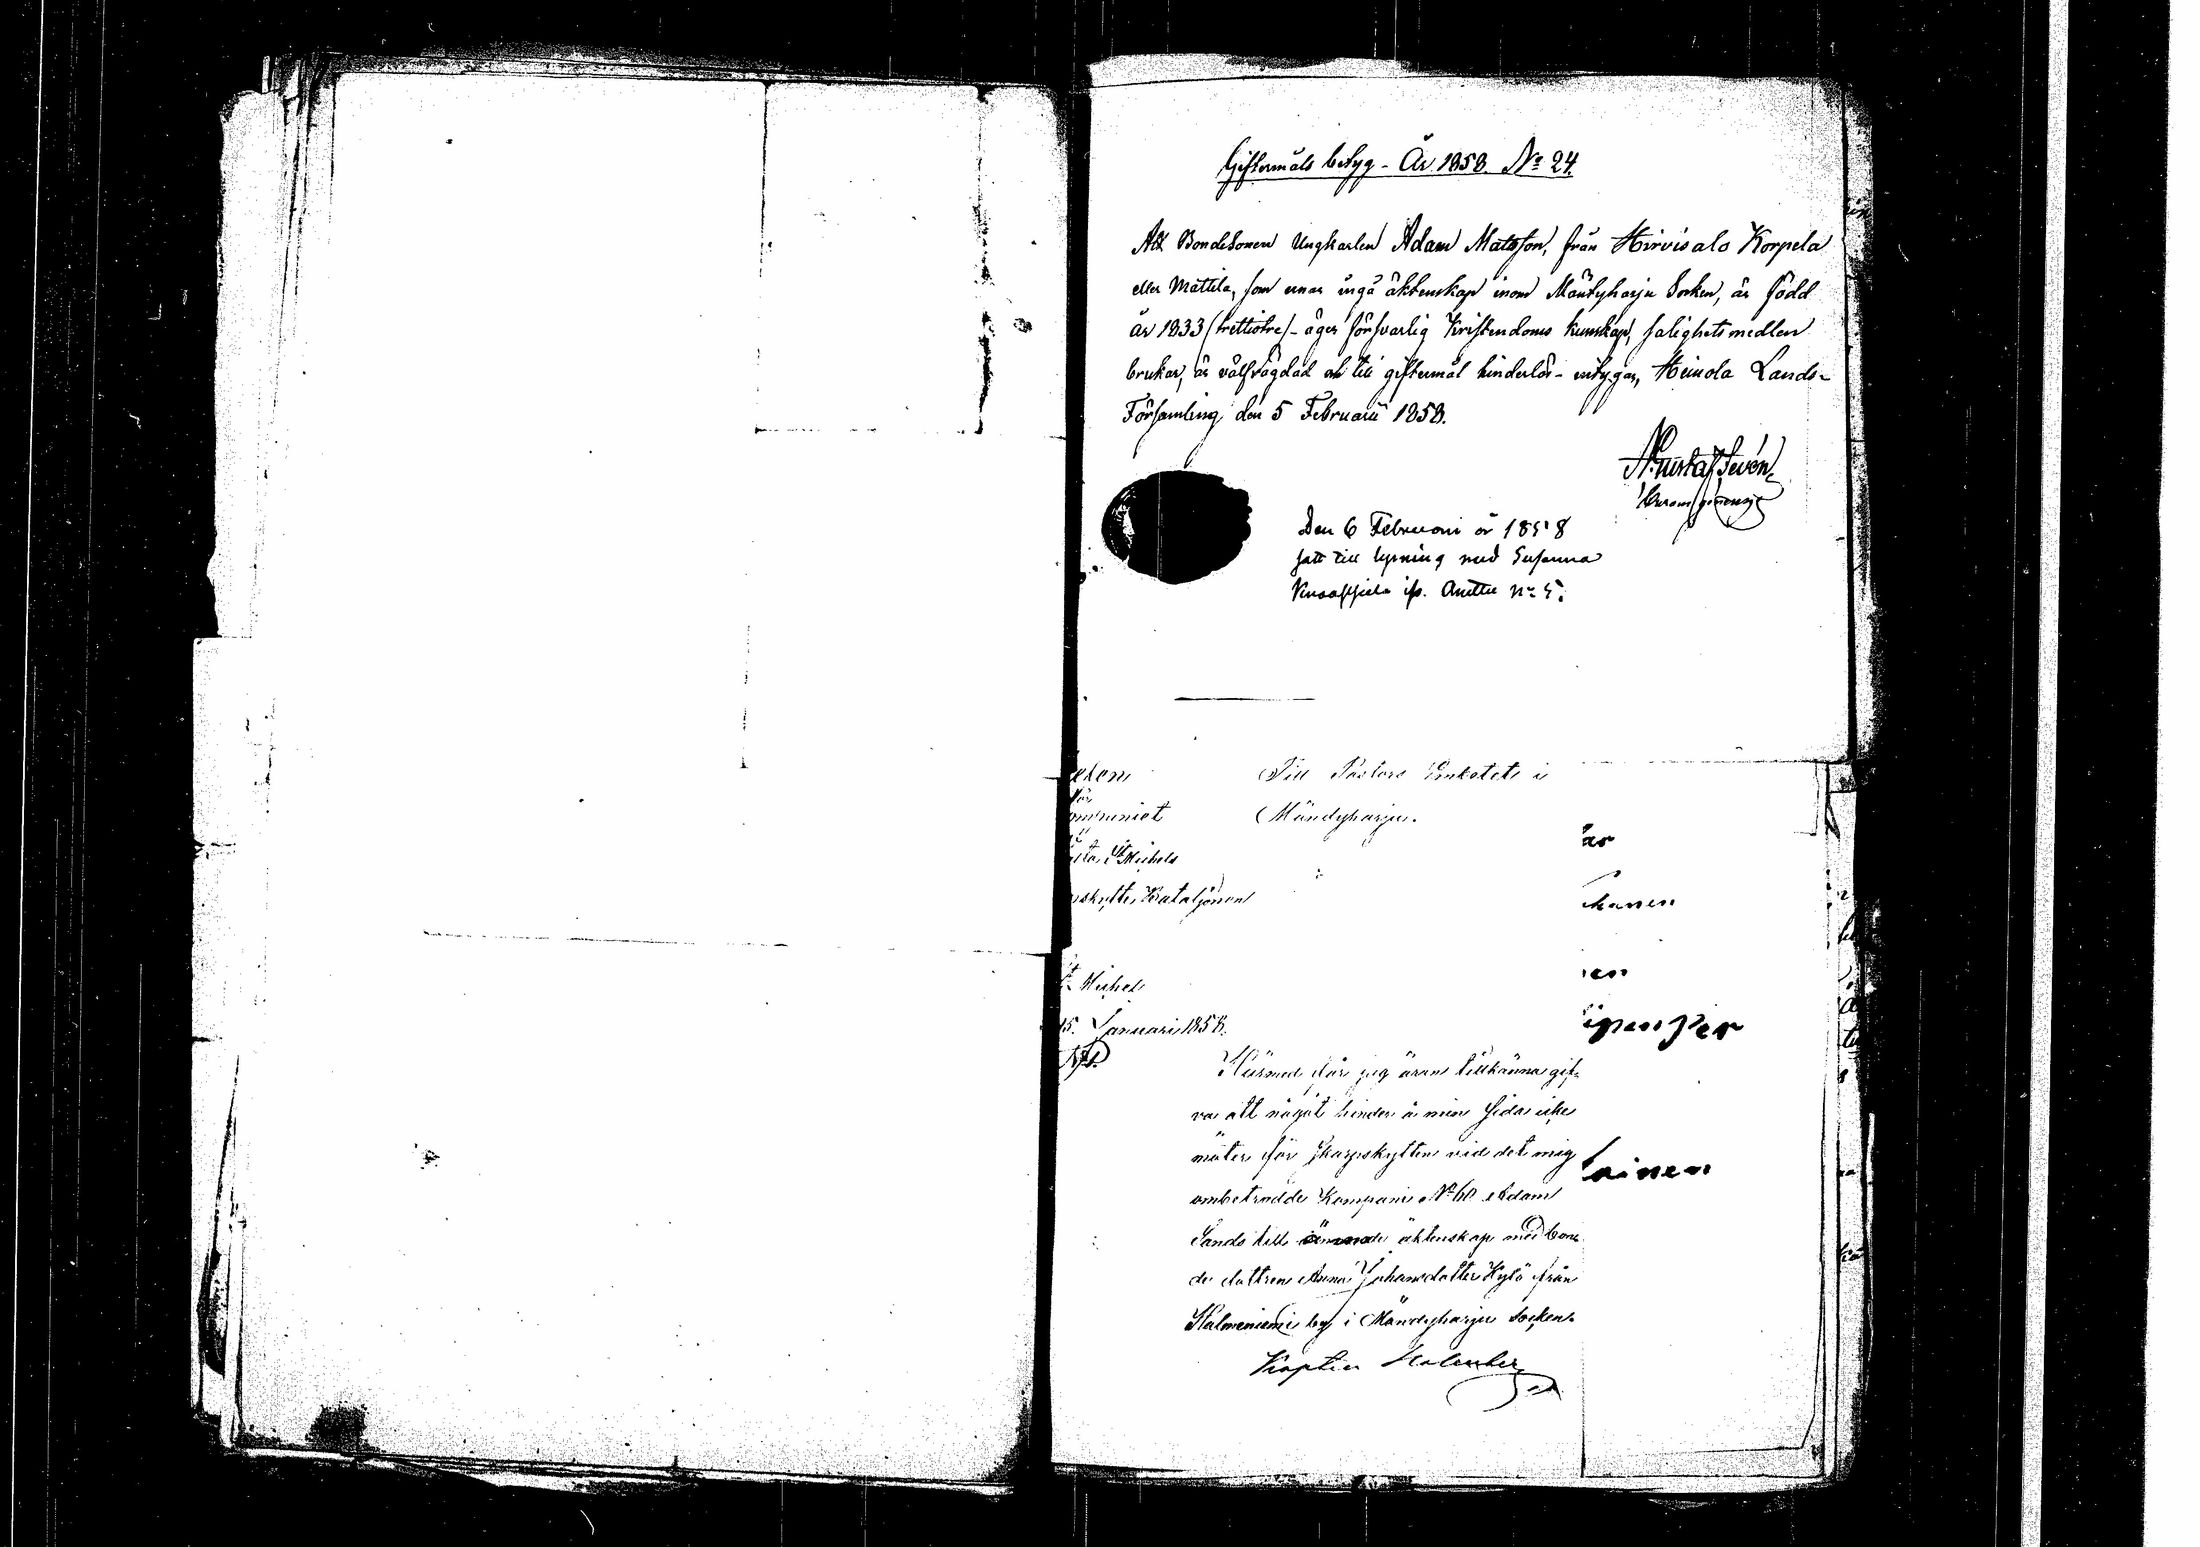 Giftermåls betyg - År 1858. No 24.
Att Bondesonen Ungkarlen Adam Matsson, från Hirvisalo Korpela
eller Mattila, som ernar ingå äktenskap inom Mäntyharju Socken, är född
år 1833 (trettiotre) - äger försvarlig Kristendoms kunskap, salighetsmedlen
brukar, är välfrägdad och till giftermål hinderlös - intygar, Heinola Lands-
Församling den 5 Februarii 1858.
Gustaf Sevón
Den 6 Februari år 1858
satt till lysning med Susanna
No 5.
Till Pastors Embetet i
Mändyharju.
St Michels
St Michel
15. Januari 1858.
Härmed får jag äran tillkänna gif-
va att något hinder å min sida icke
möter för Skarpskytten vid det mig
ombetrodde Kompani No 60 Adam
Sand till äktenskap med bon-
de dottren Anna Johansdotter Kylä från
Halmeniemi by i Mändyharju Socken.
Kaptin
ar
hanen
en
ipenSer
ainen